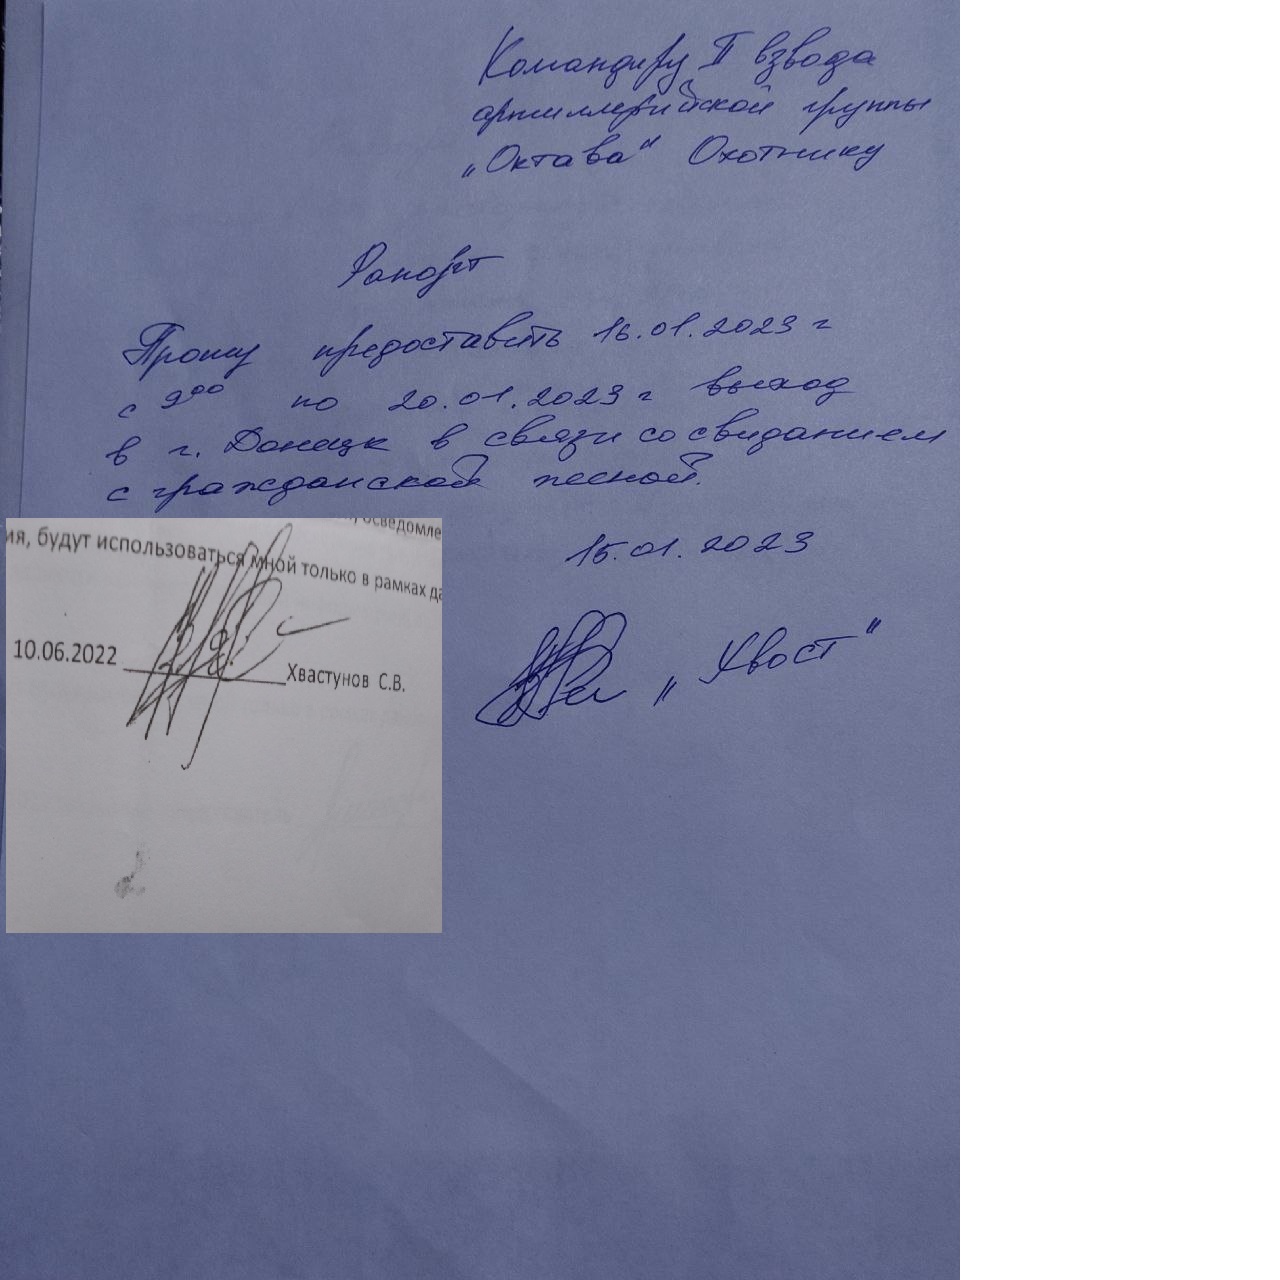 Командиру II взвода
артиллерийской группы
„Октава“ Охотнику
Рапорт
Прошу предоставить 16.01.2023 г
с 9⁰⁰ по 20.01.2023 г выход
в г. Донецк в связи со свиданием
с гражданской женой.
15.01.2023
„Хвост“
осведомле
ия, будут использоваться мной только в рамках да
10.06.2022 Хвастунов С.В.